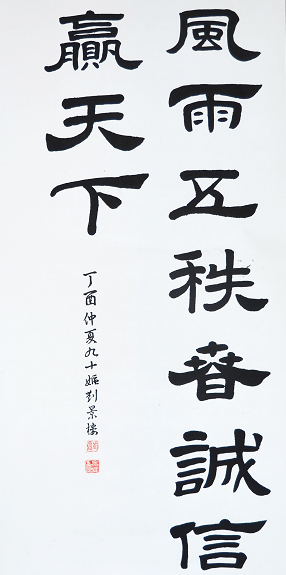 風雨五秩春誠信
贏天下
丁酉仲夏九十嫗刘景樓